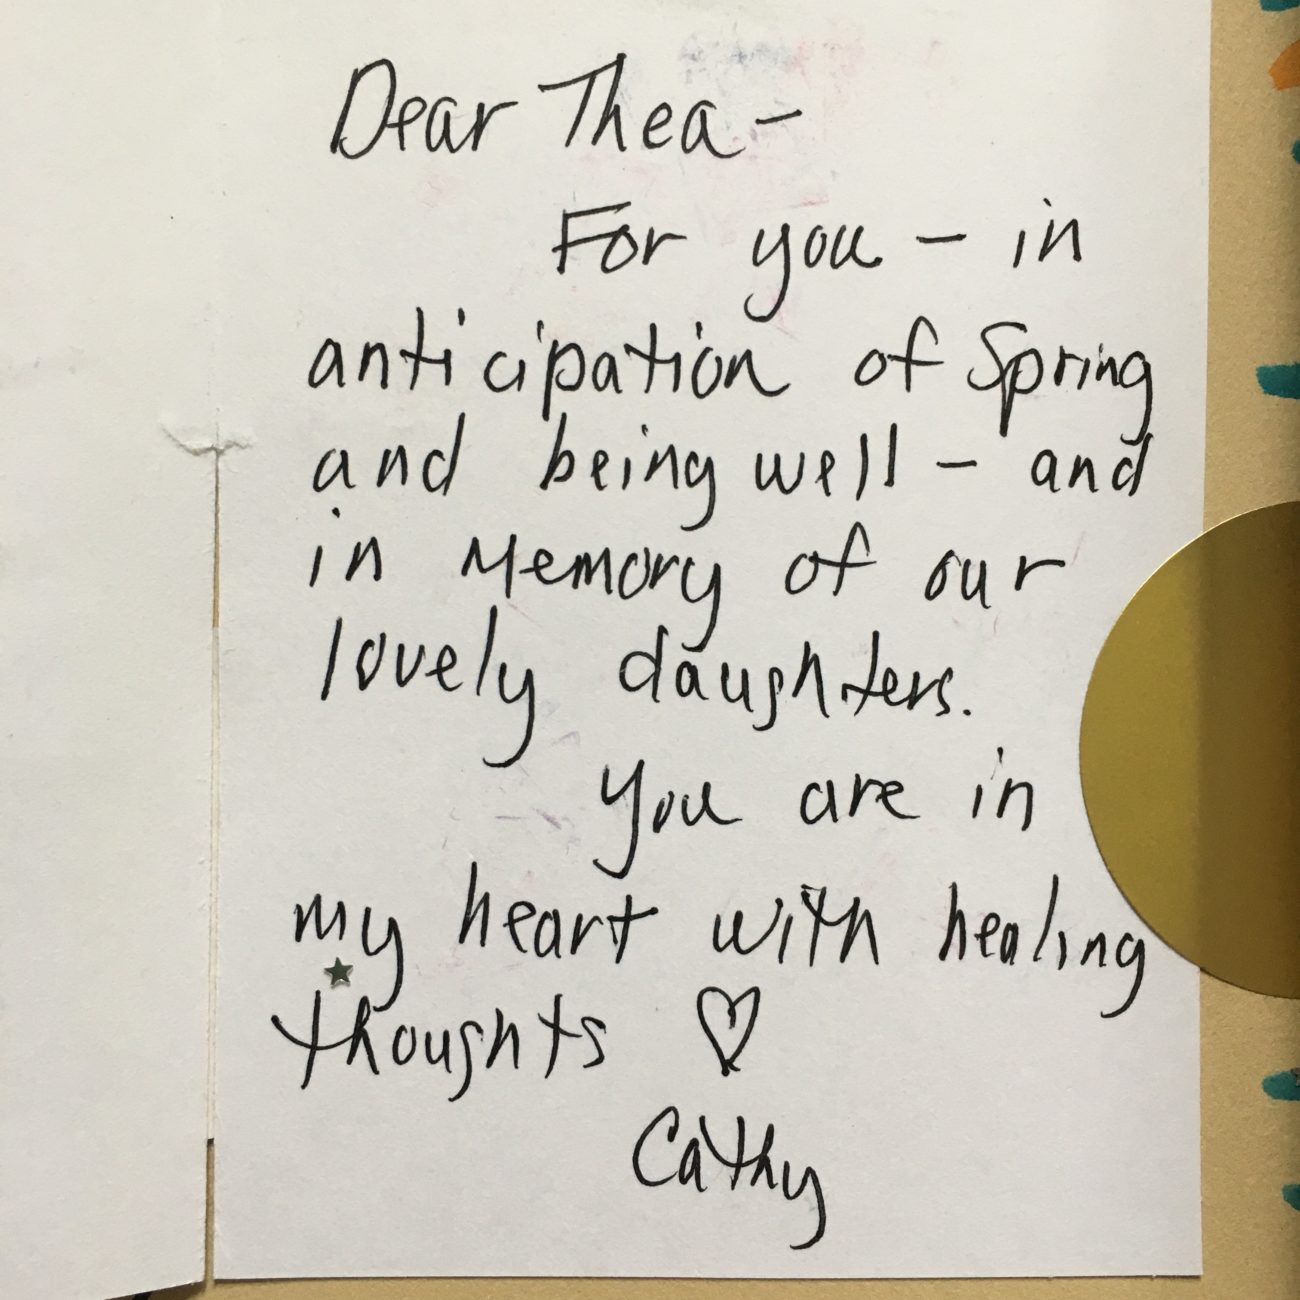 Dear Thea –
For you – in
anticipation of Spring
and being well – and
in Memory of our
lovely daughters.
You are in
my heart with healing
thoughts ♡
Cathy